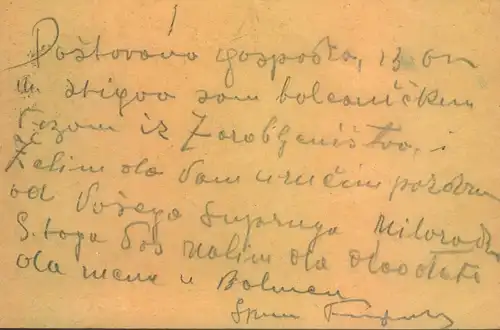 Poštovana gospođo, 13 ov
m stigao sam bolesničkim
vozom iz Zarobljeništva, i
Želim da Vam uručim pozdrav
od Vašega supruga Milorada
S. toga Vas Molim da dođete
da mene u Bolnicu